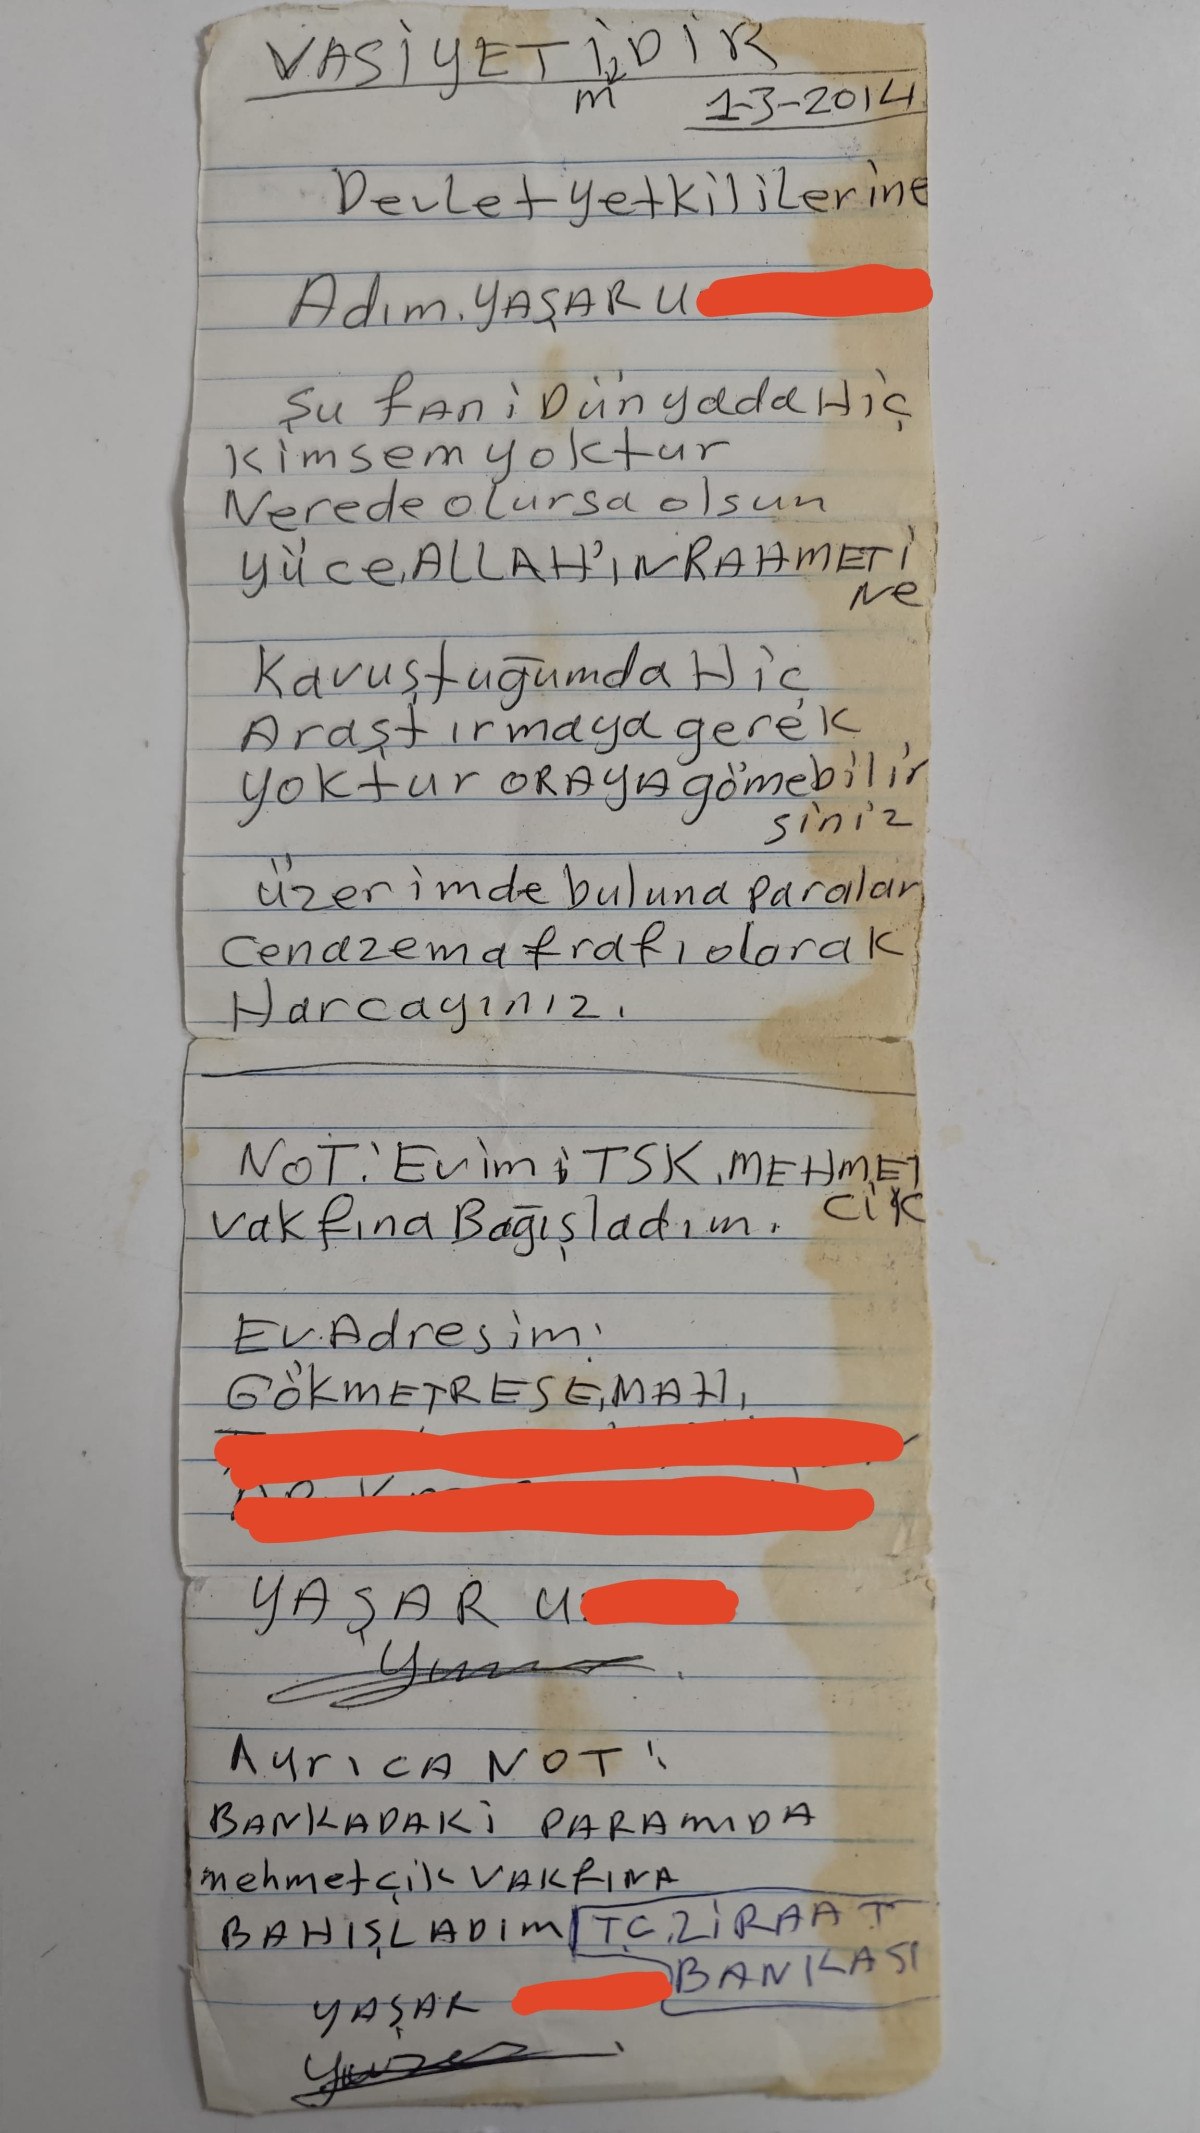 VASİYETİMDİR
1-3-2014
Devlet yetkililerine
Adım. YAŞAR U
Şu fani Dünyada Hiç
Kimsem yoktur
Nerede olursa olsun
Yüce, ALLAH'IN RAHMETİ
Ne
Kavuştuğumda Hiç
Araştırmaya gerek
yoktur ORAYA gömebilir
siniz
üzerimde buluna paralar
Cenazemafrafı olarak
Harcayınız.
NOT: Evimi TSK. MEHMET
CİK
vakfına Bağışladım.
Ev. Adresim:
GÖKMETRESE, MAH,
YAŞAR U
Ayrıca NOT:
BANKADAKİ PARAMIDA
mehmetçik VAKFINA
BAHIŞLADIM T.C. ZİRAAT
BANKASI
YAŞAR